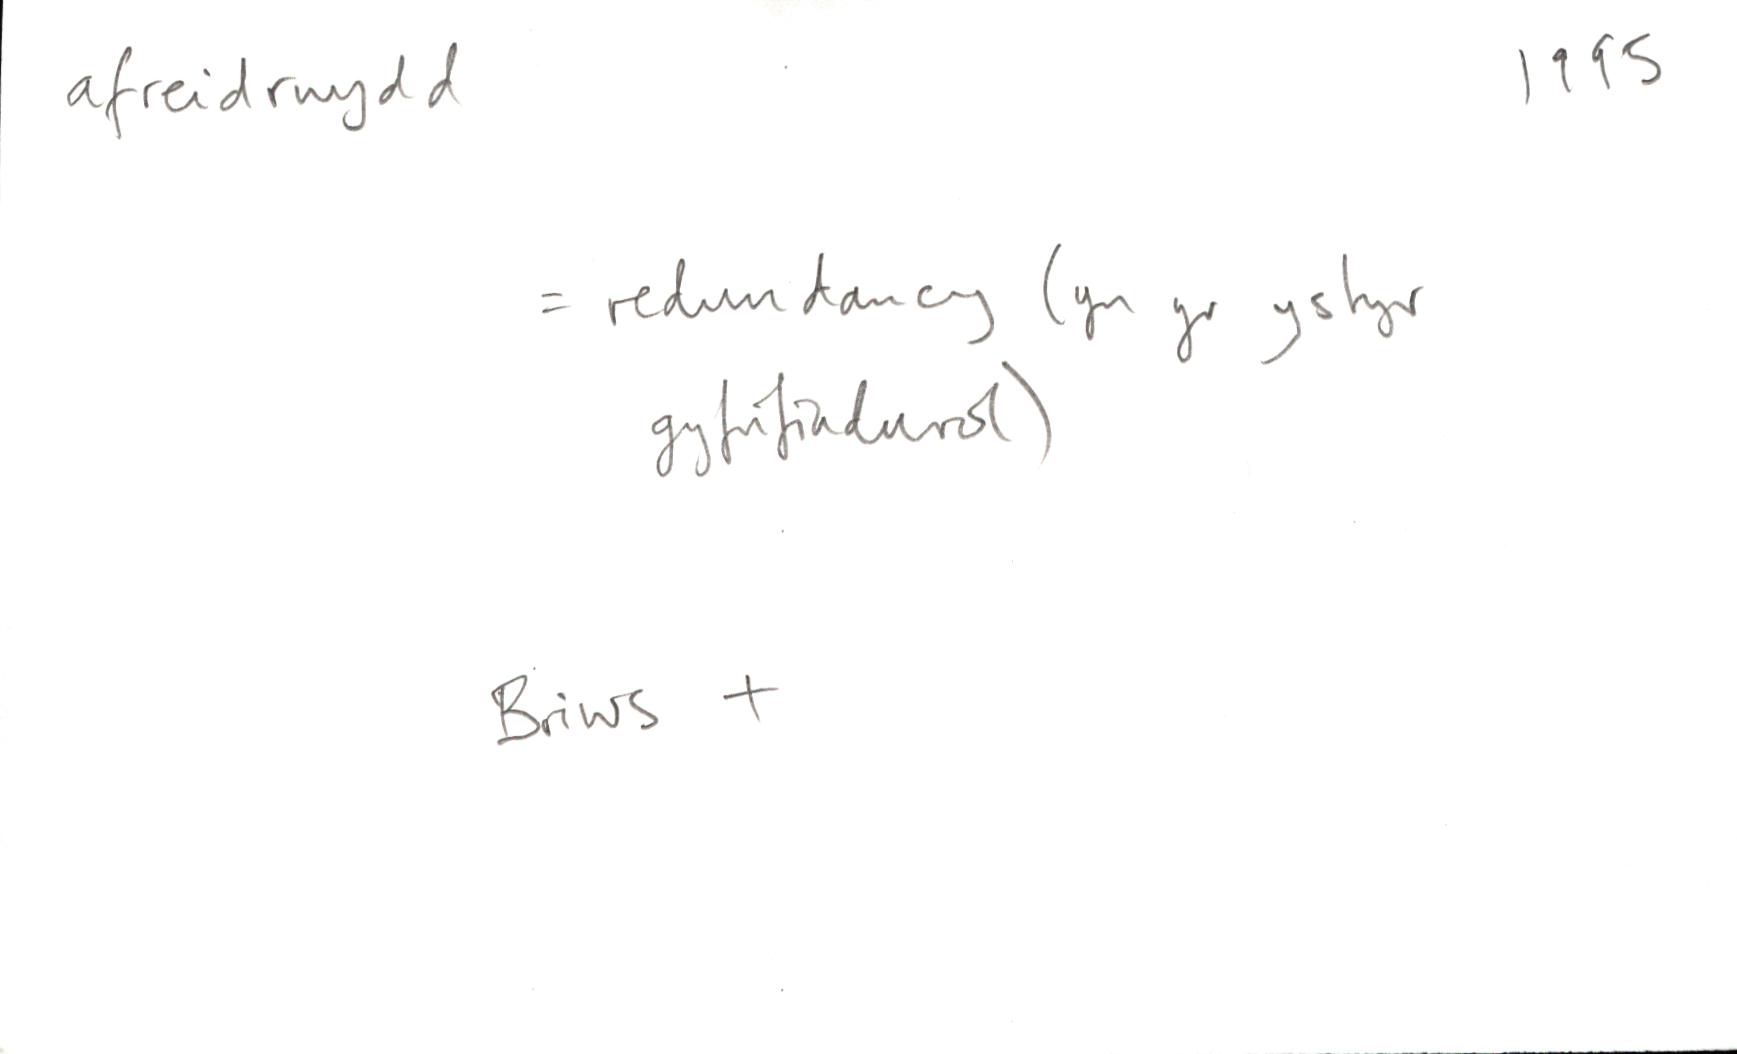 afreidrwydd 1995
= redundancy (yn yr ystyr
gyfrifiadurol)
Briws +